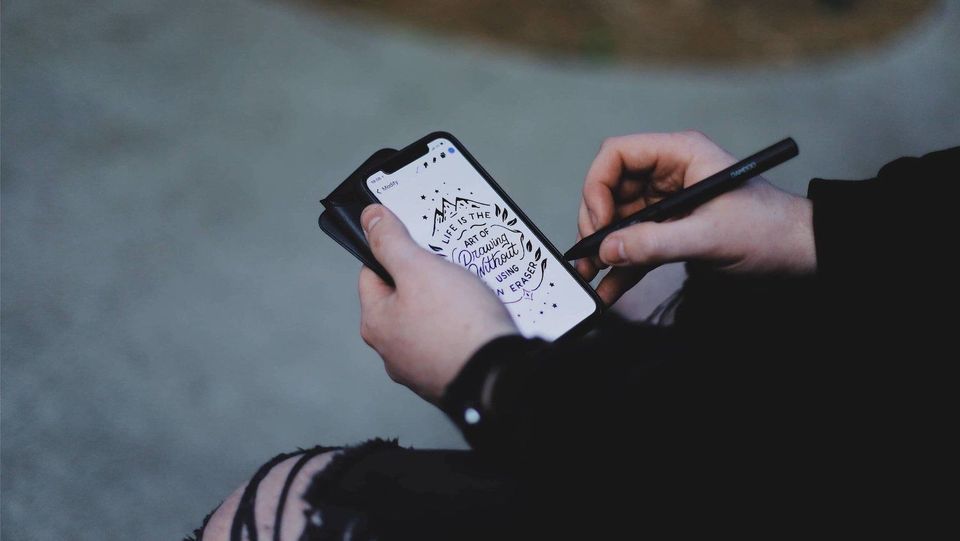 Modify
LIFE IS THE
ART OF
Drawing
Without
USING
ERASER
BAMBOO